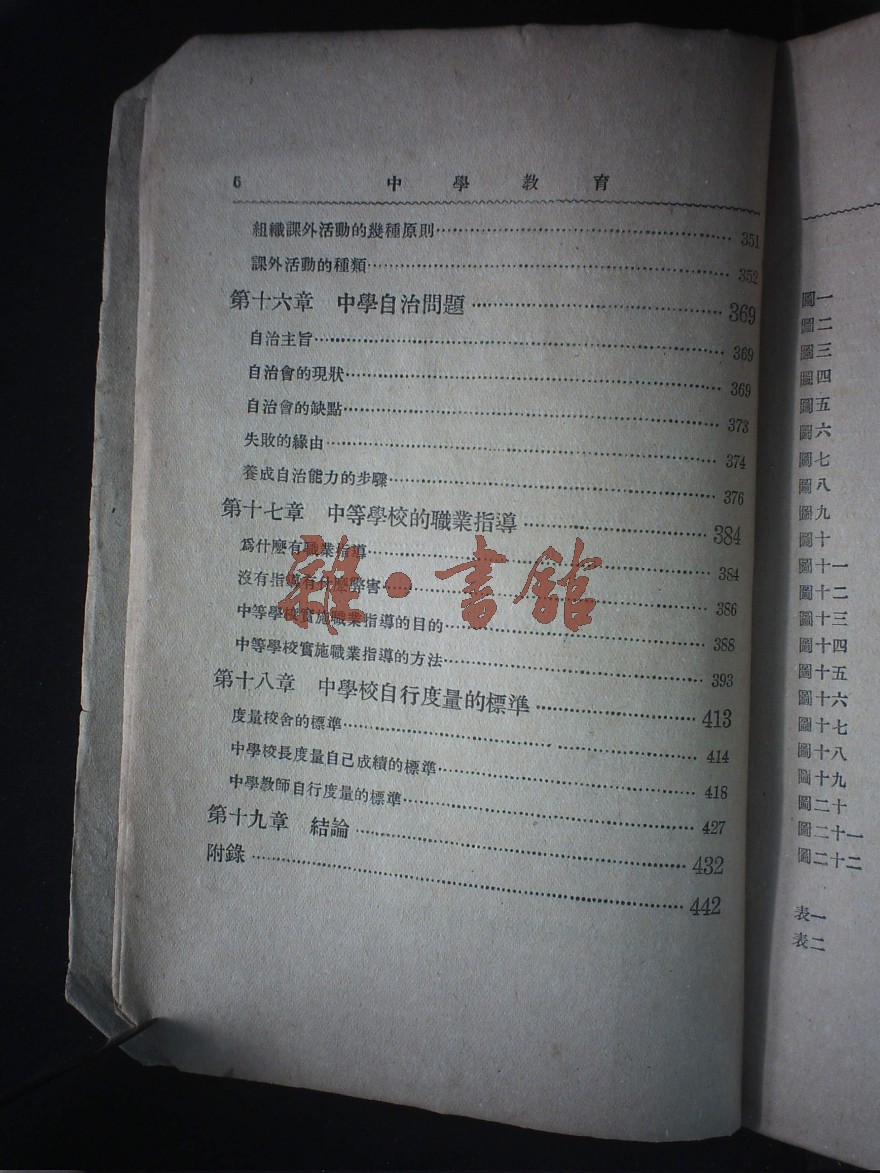 6 中學教育
組織課外活動的幾種原則 351
課外活動的種類 352
第十六章 中學自治問題 369
自治主旨 369
自治會的現狀 369
自治會的缺點 373
失敗的緣由 374
養成自治能力的步驟 376
第十七章 中等學校的職業指導 384
爲什麼有職業指導 384
沒有指導有什麼弊害 386
中等學校實施職業指導的目的 388
中等學校實施職業指導的方法 393
第十八章 中學校自行度量的標準 413
度量校舍的標準 414
中學校長度量自己成績的標準 418
中學教師自行度量的標準 427
第十九章 結論 432
附錄 442
雜·書館
圖一
圖二
圖三
圖四
圖五
圖六
圖七
圖八
圖九
圖十
圖十一
圖十二
圖十三
圖十四
圖十五
圖十六
圖十七
圖十八
圖十九
圖二十
圖二十一
圖二十二
表一
表二